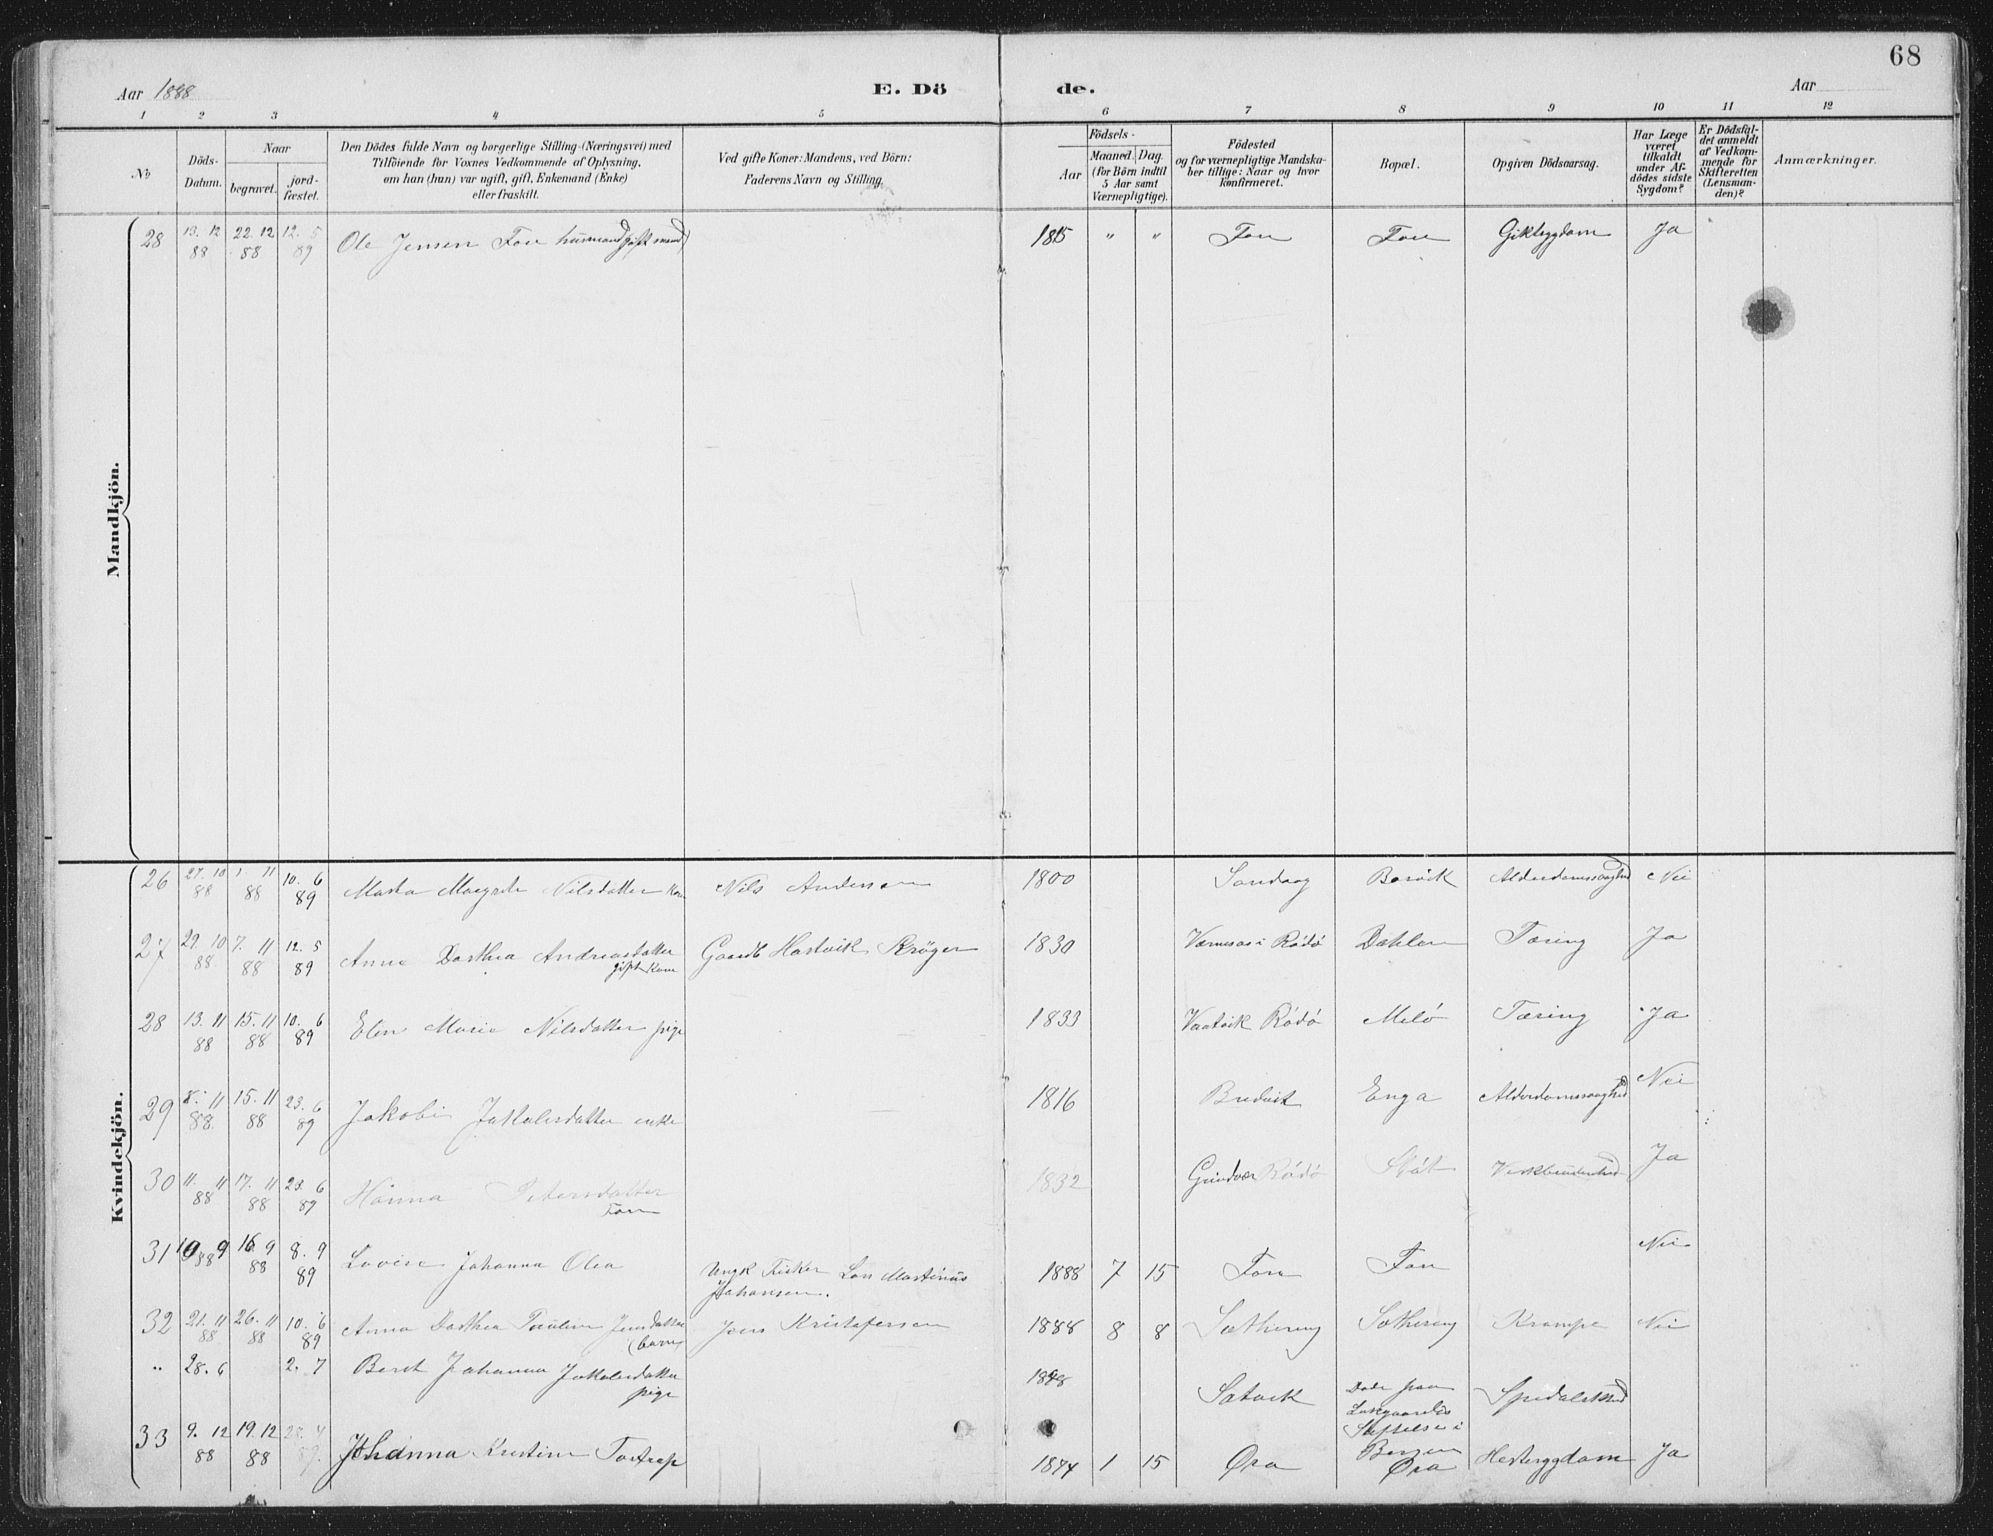 68
Aar 1888
E. Dö
de.
Aar
1 2 3 4 5 6 7 8 9 10 11 12
No
Döds-
Datum.
Naar
begravet.
jord-
fæstet.
Den Dödes fulde Navn og borgerlige Stilling (Næringsvei) med
Tilföiende for Voxnes Vedkommende af Oplysning,
om han (hun) var ugift, gift, Enkemand (Enke)
eller fraskilt.
Ved gifte Koner: Mandens, ved Börn:
Faderens Navn og Stilling.
Födsels-
Aar
Maaned. Dag.
(for Börn indtil
5 Aar samt
Værnepligtige).
Födested
og for værnepligtige Mandska-
ber tillige: Naar og hvor
konfirmeret.
Bopæl.
Opgiven Dödsaarsag.
Har Læge
været
tilkaldt
under Af-
dödes sidste
Sygdom?
Er Dödsfal-
det anmeldt
af Vedkom-
mende for
Skifteretten
(Lensman-
den)?
Anmærkninger.
Mandkjön.
28 13. 12 22. 12 12. 5 Ole Jensen Fore husmand (gift mand) 1815 " " Fore Fore Giktsygdom Ja
88 88 89
Kvindekjön.
26 27. 10 1. 11 10. 6 Nilsdatter Nils Andersen 1800 Sandaag Nei
88 88 89
27 29. 10 7. 11 12. 5 Anne Dorthea Andreasdatter Hartvik Krøger 1830 Værnesos i Rødø Dahlen Tæring Ja
88 88 89 gift Kone
28 13. 11 15. 11 10. 6 Elen Marie Nilsdatter pige 1833 Rødø Melø Tæring Ja
88 88 89
29 8. 11 15. 11 23. 6 Jakobi Jakobsdatter enke 1816 Bredvik Enga Alderdomssvaghed Nei
88 88 89
30 11. 11 17. 11 23. 6 Hanna Petersdatter 1832 Rødø Støt Ja
88 88 89 Fore
31 10. 9 16. 9 8. 9 Lovise Johanna Olea Ungk Fisker Martinus 1888 7 15 Fore Fore Nei
88 88 89 Johansen.
32 21. 11 26. 11 10. 6 Anna Dorthea Jensdatter Jens Kristofersen 1888 8 8 Krampe Nei
88 88 89 (barn)
" 28. 6 2. 7 Berit Johanna Jakobsdatter 1848 Satvik Døde paa Spedalskhed
pige
Stiftelse i
Bergen
33 9. 12 19. 12 Johanna Kristine 1874 1 15 Øra Øra Ja
88 88 89